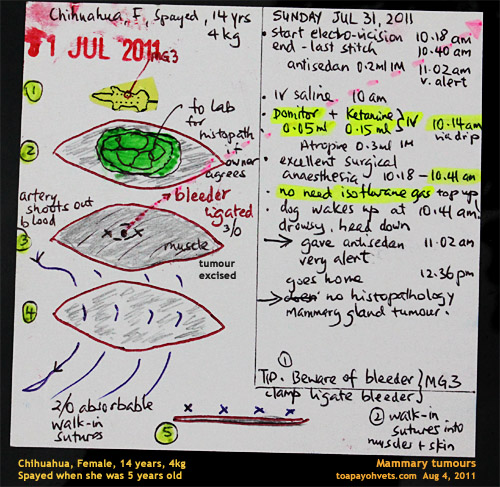 Chihuahua, F, Spayed, 14 yrs
4kg
31 JUL 2011
MG3
1
to Lab
for
histopath
if
owner
agrees
2
artery
shoots out
blood
bleeder
ligated
3/0
muscle
tumour
excised
3
4
2/0 absorbable
walk-in
sutures
5
SUNDAY JUL 31, 2011
• start electro-incision 10.18 am
end - last stitch 10.40 am
antisedan 0.2ml IM 11.02 am
v. alert
• IV saline 10 am
• Domitor + Ketamine } IV 10.14 am
0.05ml 0.15ml via drip
Atropine 0.3ml IM
• excellent surgical
anaesthesia 10.18 - 10.41 am
• no need isoflurane gas top up
• dog wakes up at 10.41 am.
drowsy, head down
→ gave antisedan 11.02 am
very alert
goes home 12.36 pm
→ no histopathology
mammary gland tumour.
1
TIP. Beware of bleeder } MG3
clamp ligate bleeder
2 walk-in
sutures into
muscles + skin
Chihuahua, Female, 14 years, 4kg
Spayed when she was 5 years old
Mammary tumours
toapayohvets.com Aug 4, 2011